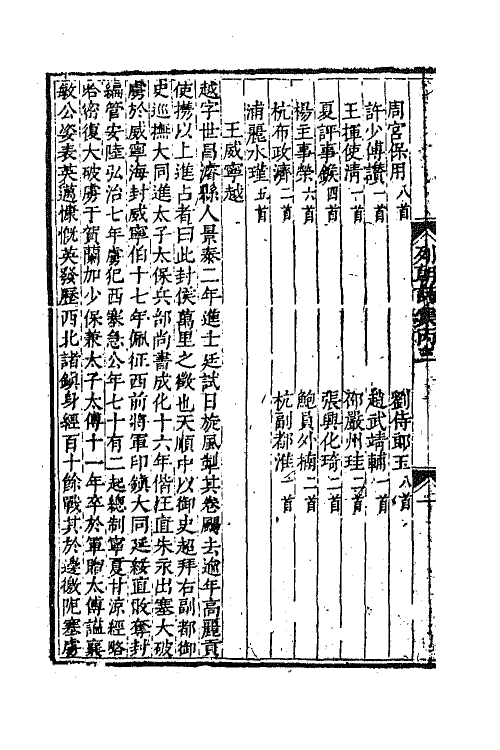 列朝詩集丙三
周宮保用八首
劉侍郎玉八首
許少傅讚一首
趙武靖輔一首
王揮使清一首
邵嚴州珪二首
夏評事鍭四首
張興化琦二首
楊主事榮六首
鮑員外楠二首
杭布政濟二首
杭副都淮一首
浦麗水瑾五首
王威寧越
越字世昌濬縣人景泰二年進士廷試日旋風掣其卷颺去逾年高麗貢
使攜以上進占者曰此封侯萬里之徵也天順中以御史超拜右副都御
史巡撫大同進太子太保兵部尚書成化十六年偕汪直朱永出塞大破
虜於威寧海封威寧伯十七年佩征西前將軍印鎮大同延綏直敗奪封
編管安陸弘治七年虜犯西塞急公年七十有二起總制寧夏甘涼經略
哈密復大破虜于賀蘭加少保兼太子太傅十一年卒於軍贈太傅謚襄
敏公姿表英邁慷慨英發歷西北諸鎮身經百十餘戰其於邊徼阨塞虜